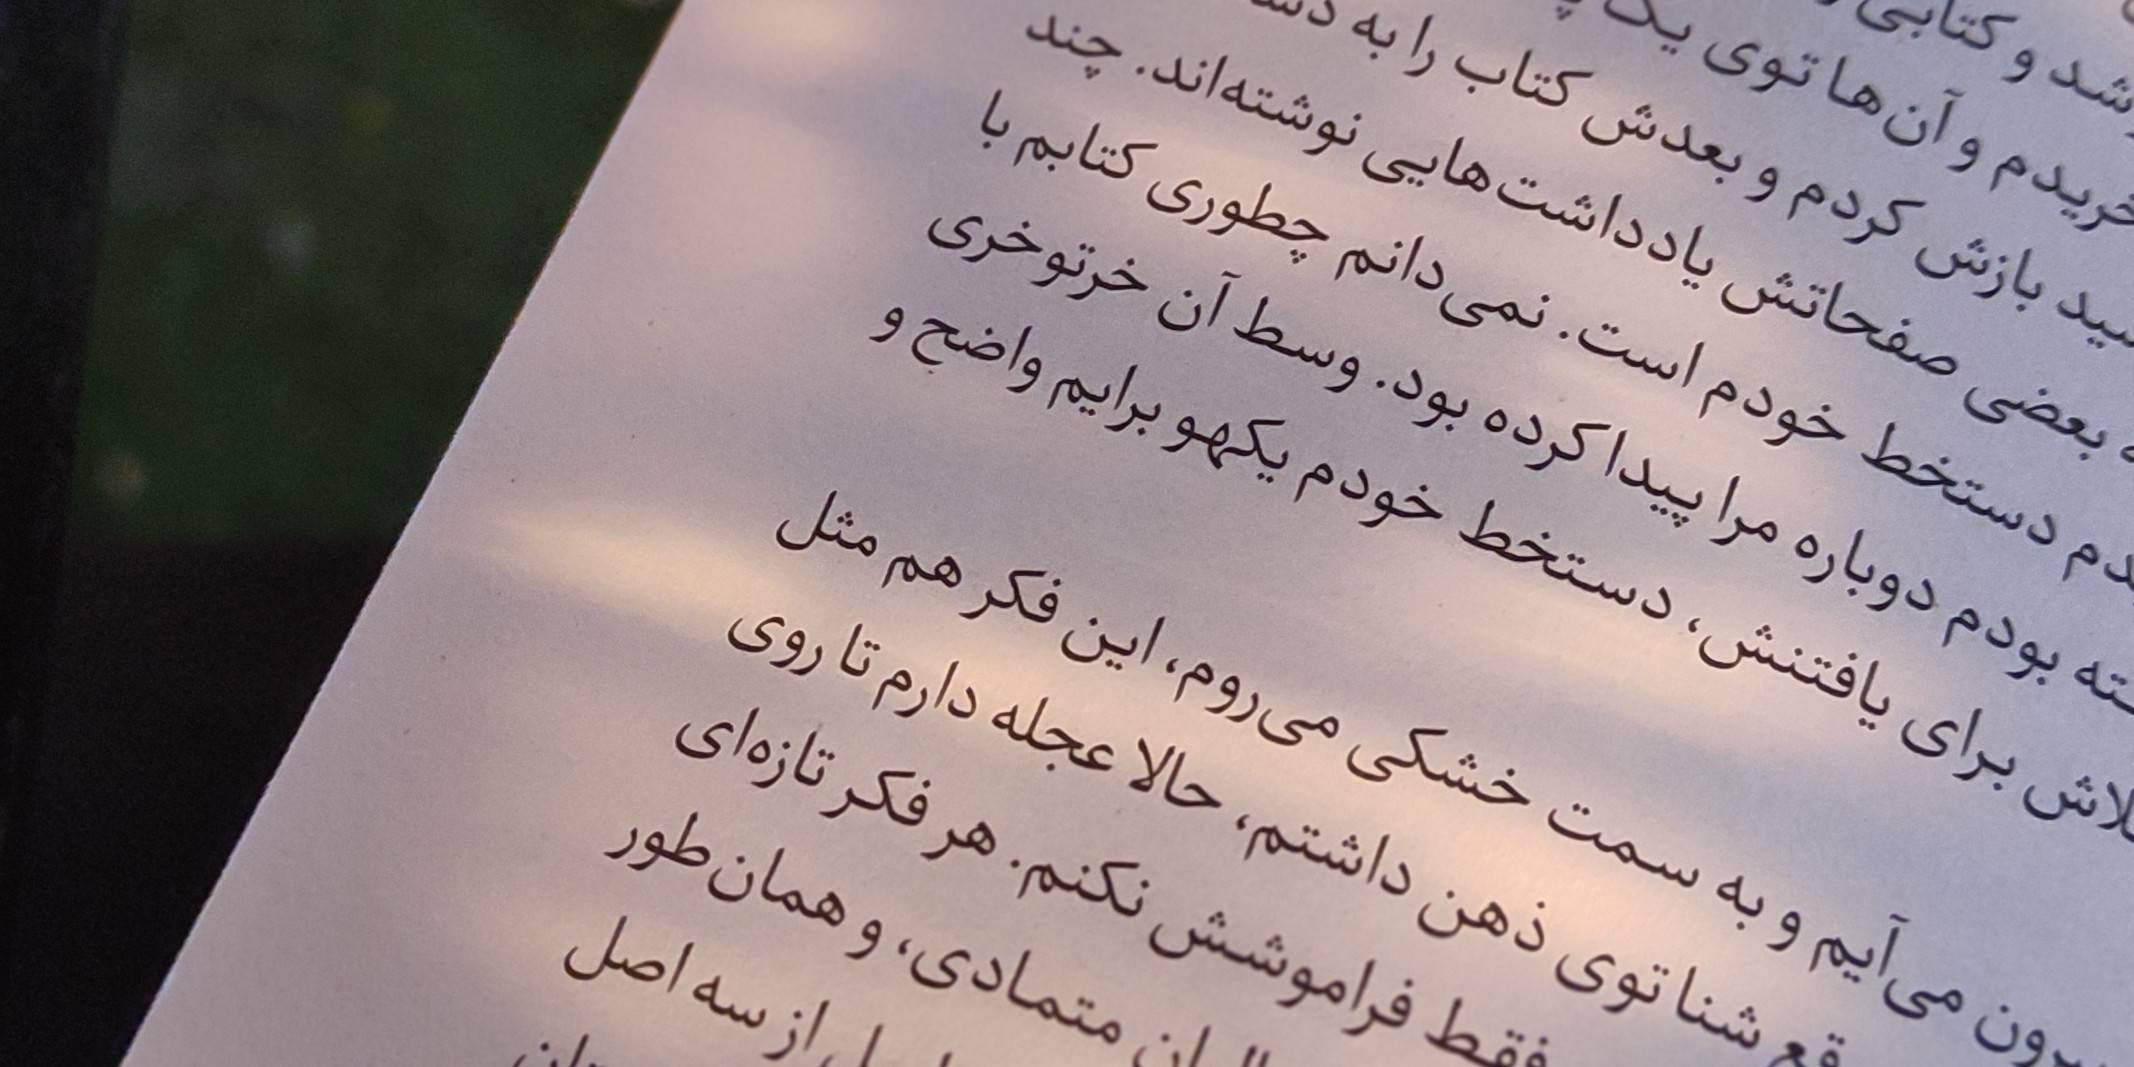 شد و کتابی
خریدم و آن‌ها توی یک
بازش کردم و بعدش کتاب را به
بعضی صفحاتش یادداشت‌هایی نوشته‌اند. چند
دستخط خودم است. نمی‌دانم چطوری کتابم با
بودم دوباره مرا پیدا کرده بود. وسط آن خرتوخری
برای یافتنش، دستخط خودم یکهو برایم واضح و
می‌آیم و به سمت خشکی می‌روم، این فکر هم مثل
شنا توی ذهن داشتم، حالا عجله دارم تا روی
فقط فراموشش نکنم. هر فکر تازه‌ای
متمادی، و همان‌طور
از سه اصل